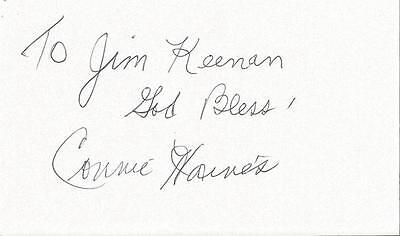 To Jim Keenan
God Bless!
Connie Haines